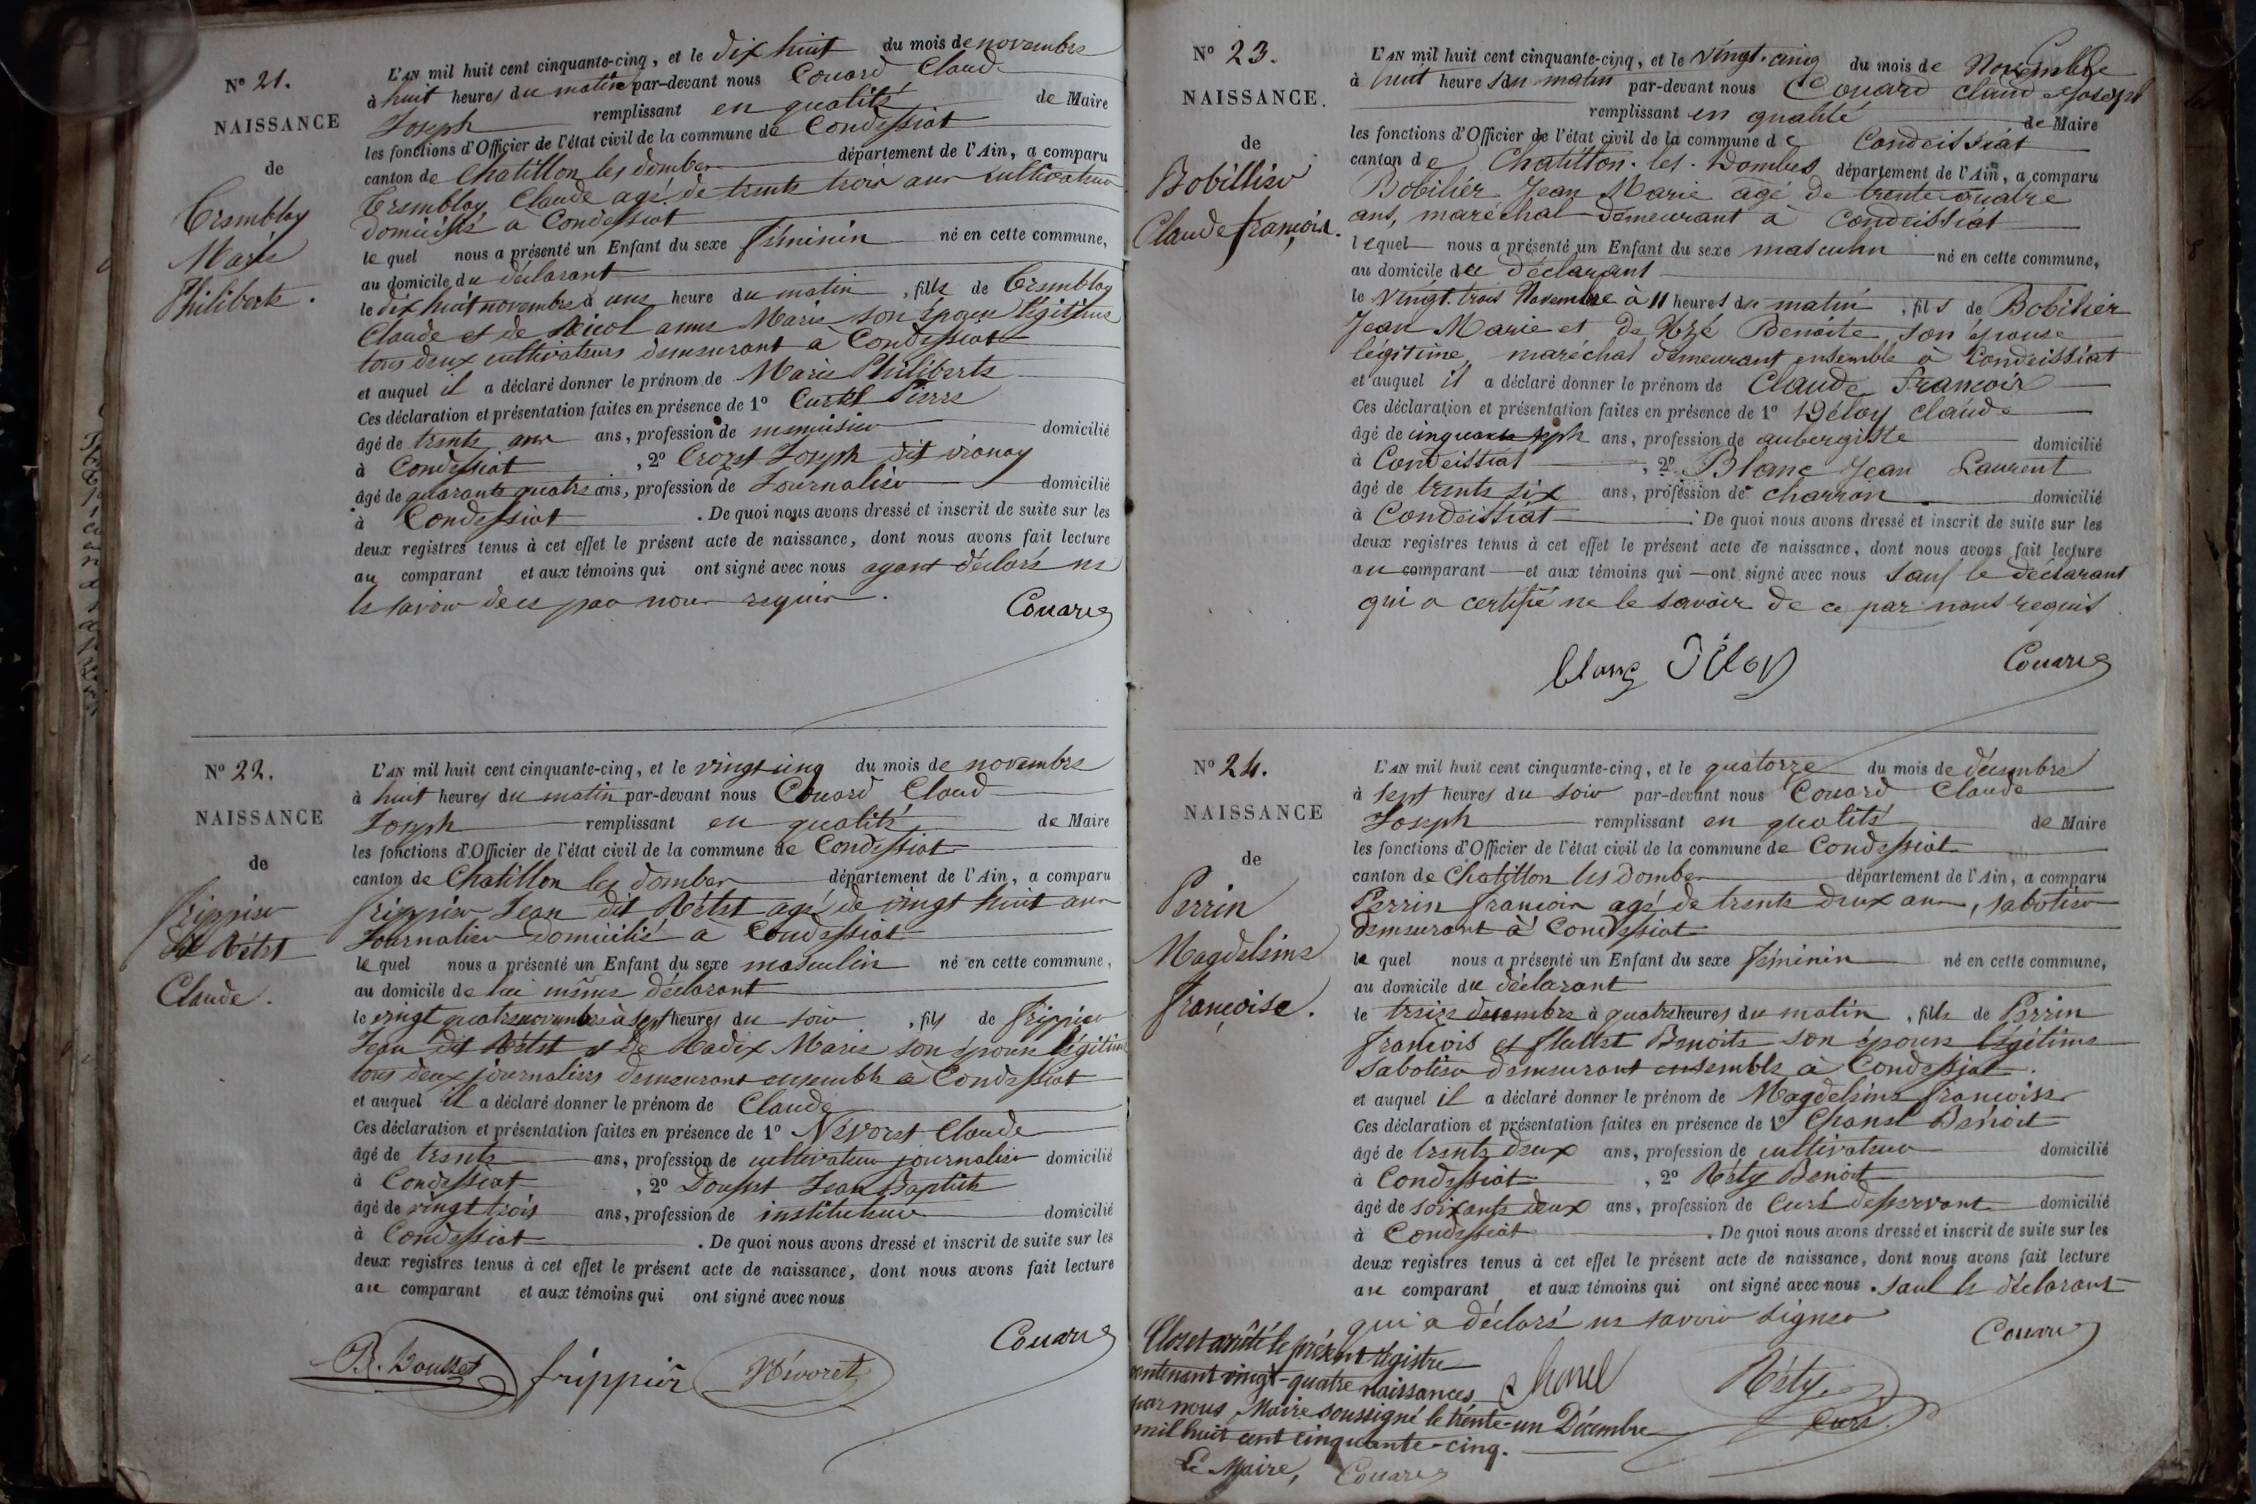 N° 21.
NAISSANCE
de
Tremblay
Marie
Philiberte.
L'AN mil huit cent cinquante-cinq, et le dix huit du mois de novembre
à huit heures du matin par-devant nous Couard Claude
Joseph remplissant en qualité de Maire
les fonctions d'Officier de l'état civil de la commune de Condessiat
canton de Chatillon les dombes département de l'Ain, a comparu
Tremblay Claude agé de trente trois ans cultivateur
domicilié à Condessiat
lequel nous a présenté un Enfant du sexe féminin né en cette commune,
au domicile du déclarant
le dix huit novembre à une heure du matin, fille de Tremblay
Claude et de Nicol anne Marie son épouse légitime
tous deux cultivateurs demeurant à Condessiat
et auquel il a déclaré donner le prénom de Marie Philiberte
Ces déclaration et présentation faites en présence de 1° Curtet Pierre
âgé de trente ans ans, profession de menuisier domicilié
à Condessiat, 2° Crozet Joseph dit vionay
âgé de quarante quatre ans, profession de Journalier domicilié
à Condessiat. De quoi nous avons dressé et inscrit de suite sur les
deux registres tenus à cet effet le présent acte de naissance, dont nous avons fait lecture
au comparant et aux témoins qui ont signé avec nous ayant déclaré ne
le savoir de ce par nous requis.
Couard
N° 22.
NAISSANCE
de
frippier
dit Rétet
Claude.
L'AN mil huit cent cinquante-cinq, et le vingt cinq du mois de novembre
à huit heures du matin par-devant nous Couard Claude
Joseph remplissant en qualité de Maire
les fonctions d'Officier de l'état civil de la commune de Condessiat
canton de Chatillon les dombes département de l'Ain, a comparu
frippier Jean dit Rétet agé de vingt huit ans
Journalier domicilié à Condessiat
lequel nous a présenté un Enfant du sexe masculin né en cette commune,
au domicile de lui même déclarant
le vingt quatre novembre à sept heures du soir, fils de frippier
Jean dit Rétet et de Radix Marie son épouse légitime
tous deux journaliers demeurant ensemble à Condessiat
et auquel il a déclaré donner le prénom de Claude
Ces déclaration et présentation faites en présence de 1° Névoret Claude
âgé de trente ans, profession de cultivateur journalier domicilié
à Condessiat, 2° Dousset Jean Baptiste
âgé de vingt trois ans, profession de instituteur domicilié
à Condessiat. De quoi nous avons dressé et inscrit de suite sur les
deux registres tenus à cet effet le présent acte de naissance, dont nous avons fait lecture
au comparant et aux témoins qui ont signé avec nous
Couard
B. Dousset frippier Névoret
N° 23.
NAISSANCE.
de
Bobillier
Claude françois.
L'AN mil huit cent cinquante-cinq, et le vingt-cinq du mois de Novembre
à huit heures du matin par-devant nous Couard Claude Joseph
remplissant en qualité de Maire
les fonctions d'Officier de l'état civil de la commune de Condeissiat
canton de Chatillon-les-Dombes département de l'Ain, a comparu
Bobilier Jean Marie agé de trente quatre
ans, maréchal demeurant à Condeissiat
lequel nous a présenté un Enfant du sexe masculin né en cette commune,
au domicile du déclarant
le vingt-trois Novembre à 11 heures du matin, fils de Bobilier
Jean Marie et de Benoite son épouse
légitime, maréchal demeurant ensemble à Condeissiat
et auquel il a déclaré donner le prénom de Claude François
Ces déclaration et présentation faites en présence de 1° Déloy Claude
âgé de cinquante sept ans, profession de aubergiste domicilié
à Condeissiat, 2° Blanc Jean Laurent
âgé de trente six ans, profession de charron domicilié
à Condeissiat. De quoi nous avons dressé et inscrit de suite sur les
deux registres tenus à cet effet le présent acte de naissance, dont nous avons fait lecture
au comparant et aux témoins qui ont signé avec nous sauf le déclarant
qui a certifié ne le savoir de ce par nous requis
blanc Déloy Couard
N° 24.
NAISSANCE
de
Perrin
Magdeleine
françoise.
L'AN mil huit cent cinquante-cinq, et le quatorze du mois de décembre
à sept heures du soir par-devant nous Couard Claude
Joseph remplissant en qualité de Maire
les fonctions d'Officier de l'état civil de la commune de Condessiat
canton de Chatillon les dombes département de l'Ain, a comparu
Perrin françois agé de trente deux ans, sabotier
demeurant à Condessiat
lequel nous a présenté un Enfant du sexe féminin né en cette commune,
au domicile du déclarant
le treize decembre à quatre heures du matin, fille de Perrin
françois et Benoite son épouse légitime
Sabotier demeurant ensemble à Condessiat.
et auquel il a déclaré donner le prénom de Magdeleine françoise
Ces déclaration et présentation faites en présence de 1° Chanel Benoit
âgé de trente deux ans, profession de cultivateur domicilié
à Condessiat, 2° Réty Benoit
âgé de soixante deux ans, profession de Curé desservant domicilié
à Condessiat. De quoi nous avons dressé et inscrit de suite sur les
deux registres tenus à cet effet le présent acte de naissance, dont nous avons fait lecture
au comparant et aux témoins qui ont signé avec nous. sauf le déclarant
qui a déclaré ne savoir signer
Couard
Chanel Réty
Curé.
Clos et arrêté le présent registre
contenant vingt-quatre naissances
par nous Maire soussigné le trente-un Décembre
mil huit cent cinquante-cinq.
Le Maire, Couard